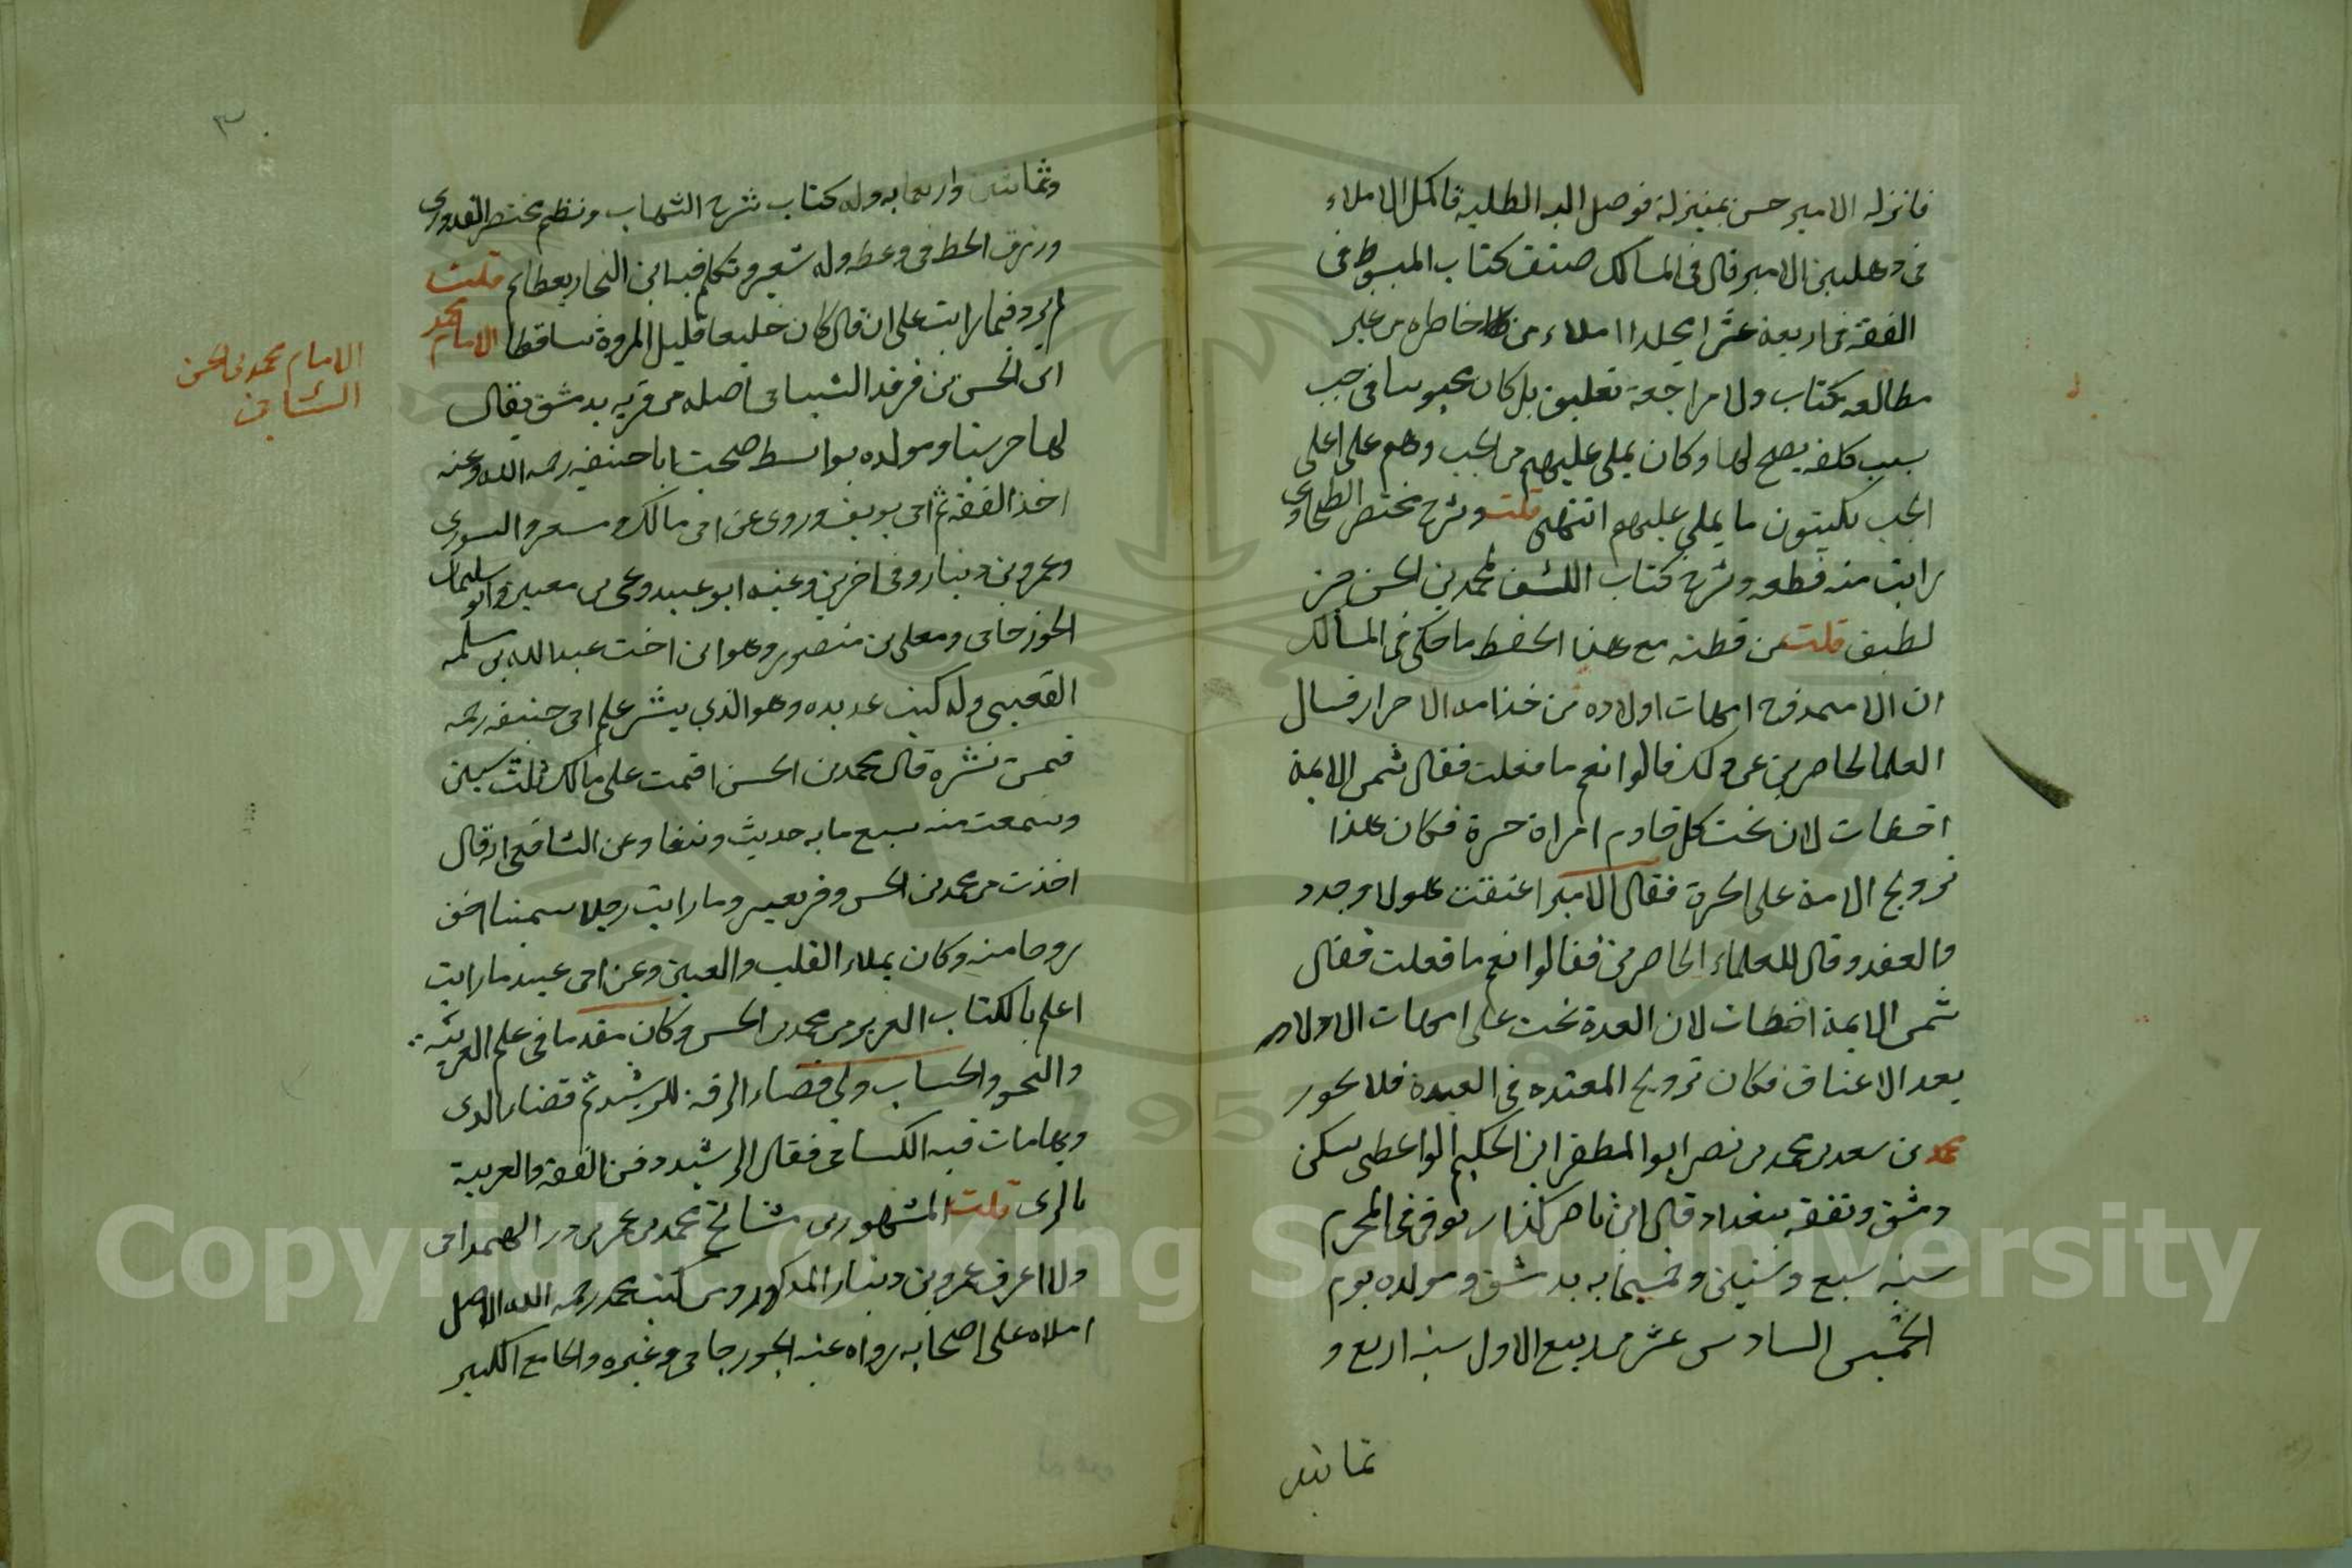 فانزله الامير حسن بمنزلة فوصل اليه الطلبه فاكمل الاملاء
فى دهليز الامير قال فى المسالك صنف كتاب المبسوط فى
الفقه فى اربعة عشر مجلدا املاء من خاطره من غير
مطالعه كتاب ولا مراجعة تعليق بل كان محبوسا فى جب
بسبب كلمة نصح لها وكان يملى عليهم من الجب وهم على اعلى
الجب يكتبون ما يملى عليهم انتهى قلت وشرح مختصر الطحاوى
رايت منه قطعه وشرح كتاب الكسب لمحمد بن الحسن جزء
لطيف قلت من فطنه مع هذا الحفظ ما حكى فى المسالك
ان الامير زوج امهات اولاده من خدامه الاحرار فسال
العلما الحاضرين عن ذلك فقالوا نعم ما فعلت فقال شمس الايمة
اخطات لان تحت كل خادم امراة حرة فكان هذا
تزويج الامة على الحرة فقال الامير اعتقت هولا وجدد
والعقد وقال للعلماء الحاضرين فقالوا نعم ما فعلت فقال
شمس الايمة اخطات لان العدة تجب على امهات الاولاد
بعد الاعتاق فكان تزويج المعتده فى العدة فلا يجوز
محمد بن سعد بن محمد بن نصر ابو المظفر ابن الحكيم الواعظ سكن
دمشق وتفقه ببغداد قال ابن ناصر توفى فى المحرم
سنه سبع وستين وخمسمايه بدمشق ومولده يوم
الخميس السادس عشر من ربيع الاول سنه اربع و
ثمانين
٣
وثمانين واربعمايه وله كتاب شرح الشهاب ونظم مختصر القدورى
ورزق الحظ فى وعظه وله شعر وتكلم فيه ابن النجار بعظائم قلت
لم يزد فيما رايت على ان قال كان خليعا قليل المروة ساقطا الامام محمد
ابن الحسن بن فرقد الشيبانى اصله من قريه بدمشق يقال
لها حرستا ومولده بواسط صحب ابا حنيفه رحمه الله وعنه
اخذ الفقه ثم ابى يوسف وروى عن ابى مالك ومسعر والثورى
وعمرو بن دينار وفى اخرين وعنه ابو عبيد ويحيى بن معين وابو سليمان
الجوزجانى ومعلى بن منصور وهو ابن اخت عبد الله بن سلمه
القعنبى وله كتب عديده وهو الذى نشر علم ابى حنيفه رحمه
فيمن نشره قال محمد بن الحسن اقمت على مالك ثلث سنين
وسمعت منه سبع مايه حديث ونيفا وعن الشافعى انه قال
اخذت من محمد بن الحسن وقر بعير وما رايت رجلا سمينا اخف
روحا منه وكان يملاء القلب والعين وعن ابى عبيد ما رايت
اعلم بالكتاب العزيز من محمد بن الحسن وكان مقدما فى علم العربية
والنحو والحساب ولى قضاء الرقة للرشيد ثم قضاء الرى
وبها مات فيه الكسائى فقال الرشيد دفن الفقه والعربية
بالرى قلت المشهور من مشائخ محمد عمر بن ذر الهمدانى
ولا اعرف عمرو بن دينار المذكور ومن كتب محمد رحمه الله الاصل
املاه على اصحابه رواه عنه الجوزجانى وغيره والجامع الكبير
الامام محمد بن الحسن
Copyright © King Saud University